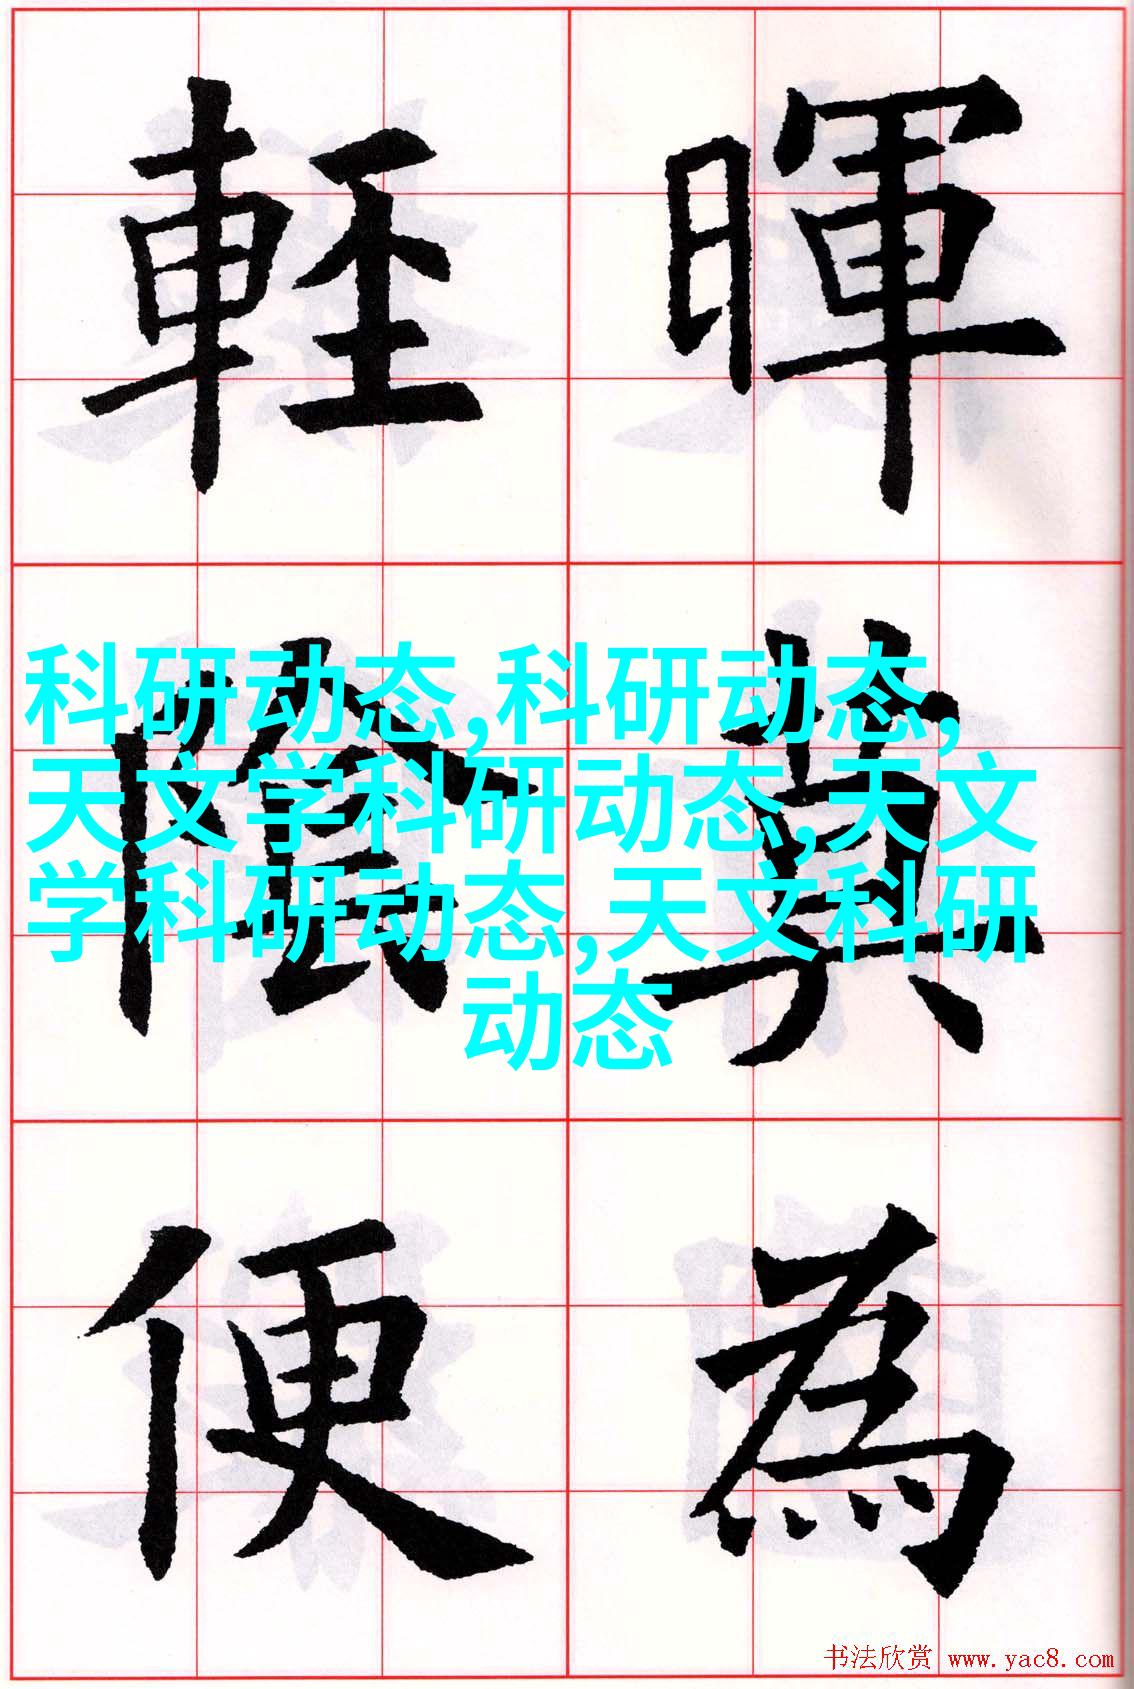 暉莫為
輕陰便
科研动态,科研动态,
天文学科研动态,天文
学科研动态,天文科研
动态
书法欣赏 www.yac8.com